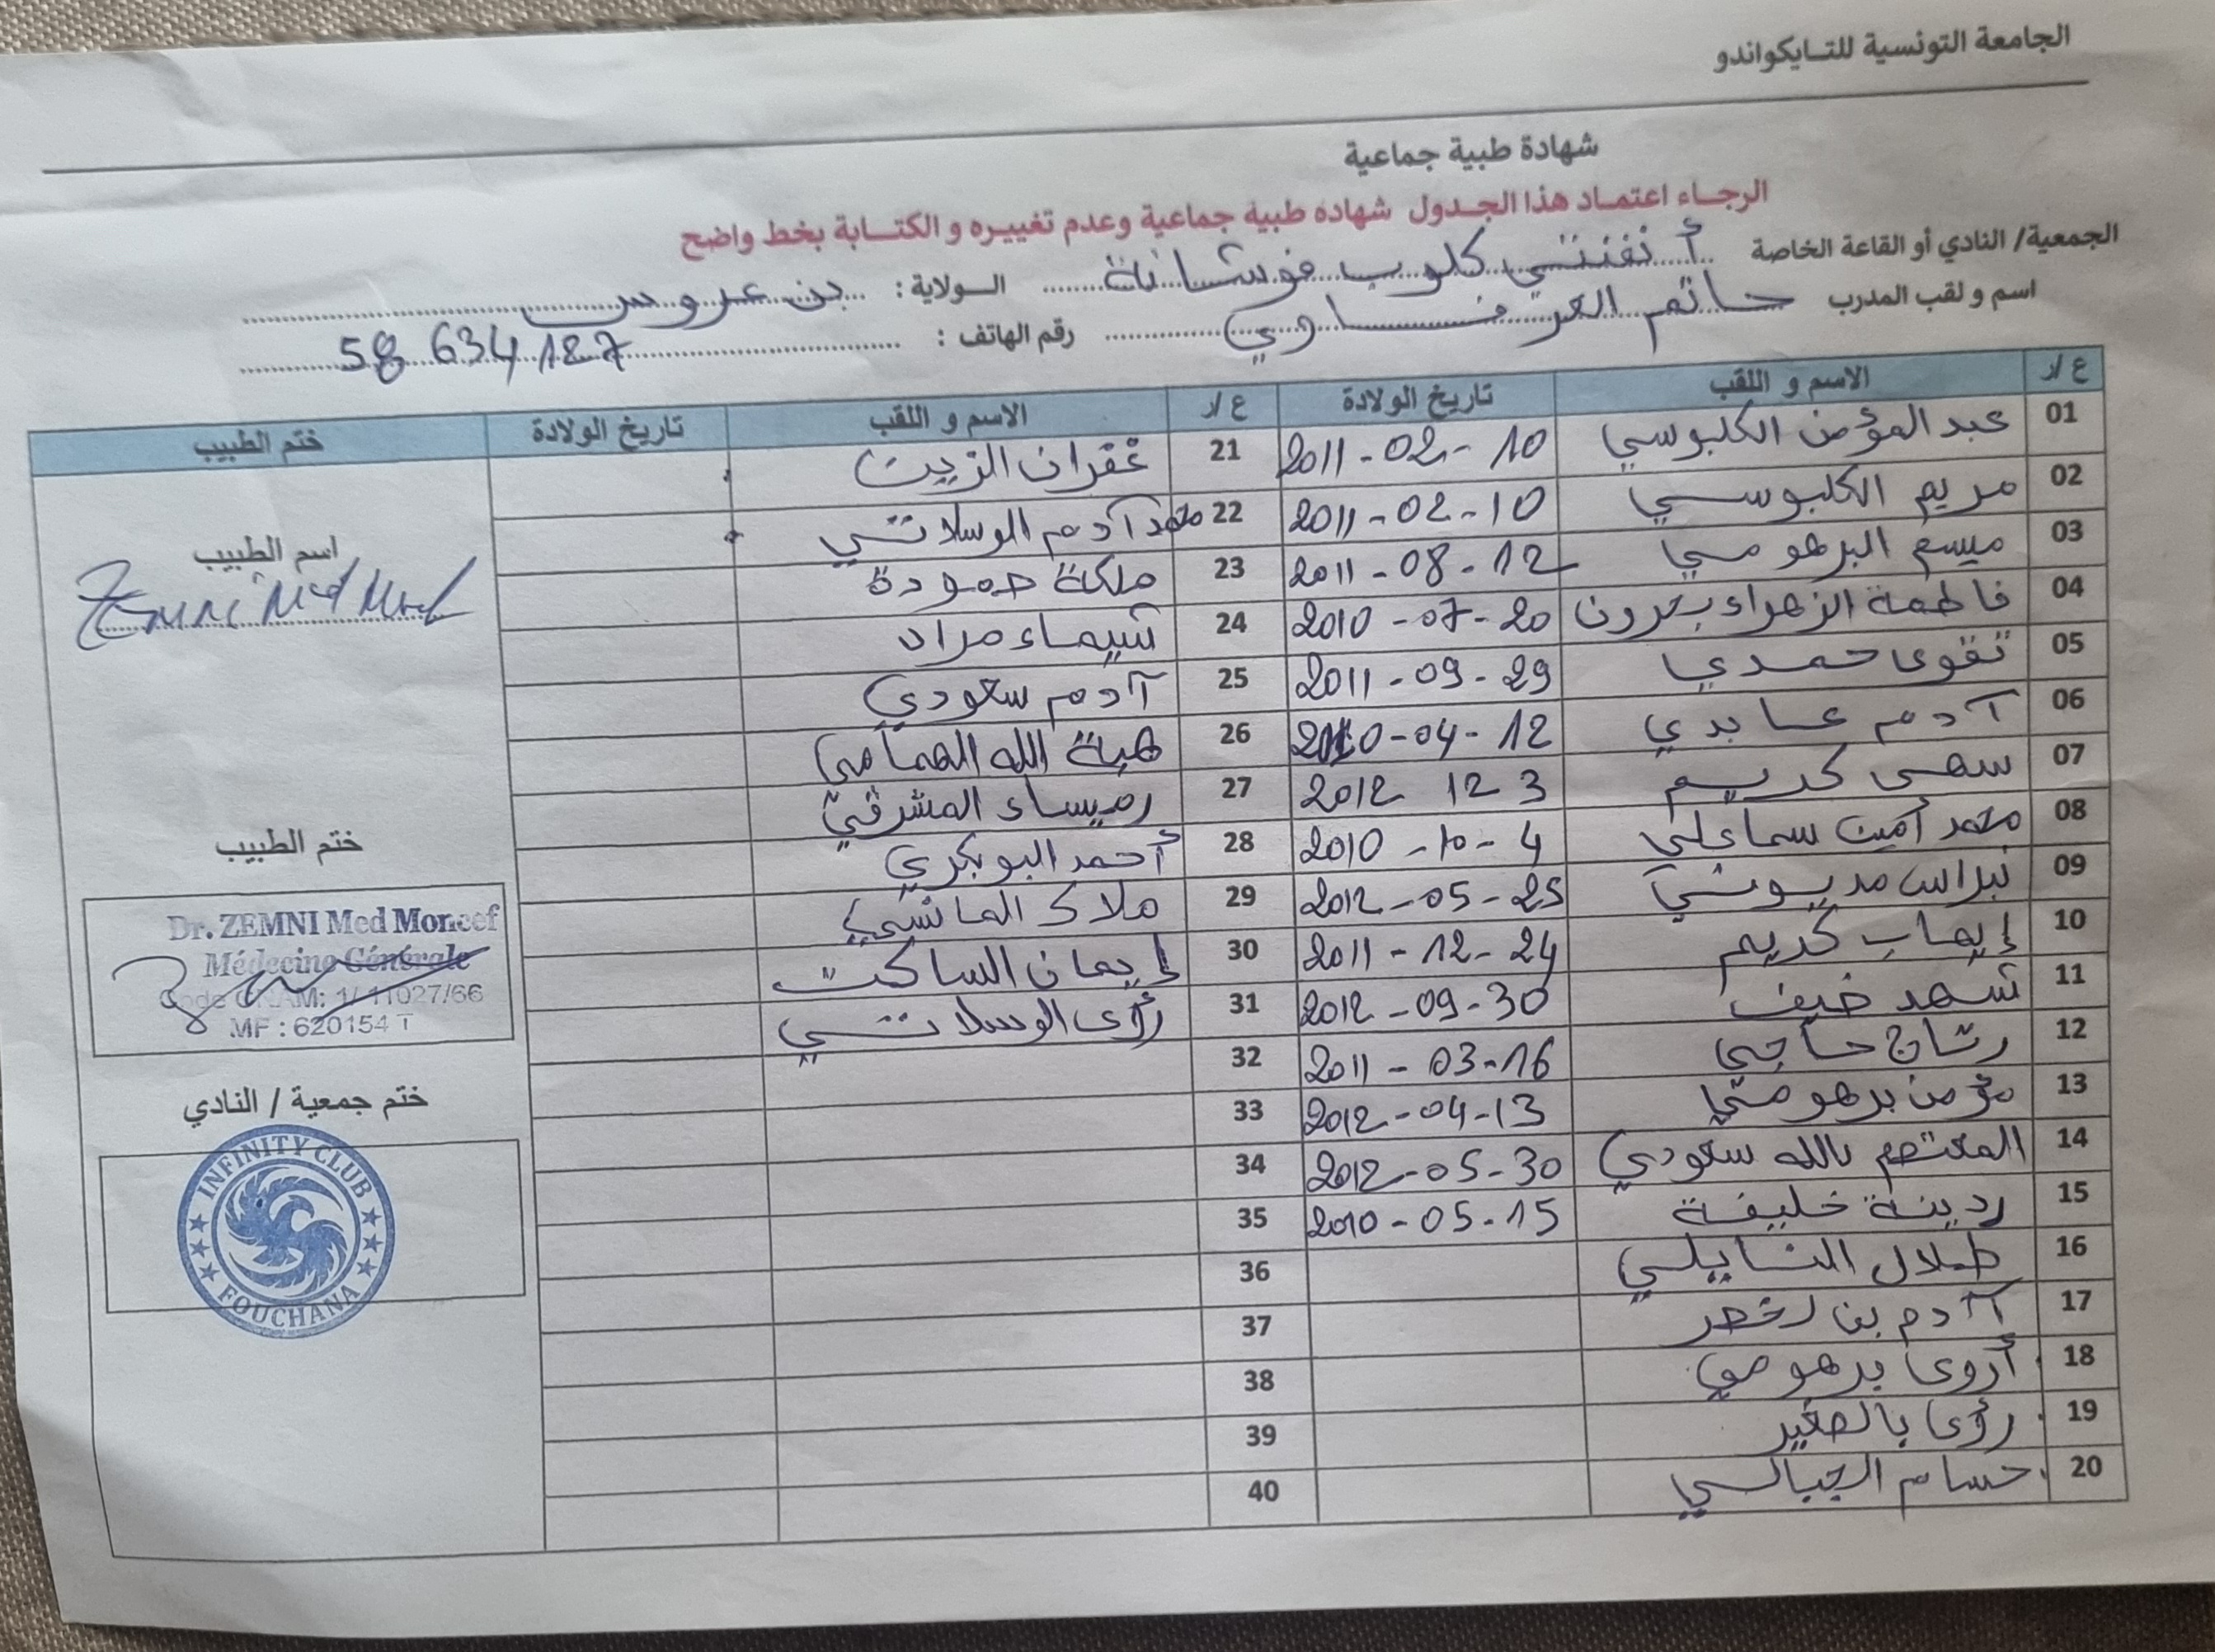 الجامعة التونسية للتايكواندو
شهادة طبية جماعية
الرجاء اعتماد هذا الجدول شهادة طبية جماعية وعدم تغييره و الكتابة بخط واضح
الجمعية/ النادي أو القاعة الخاصة أنفنتي كلوب فوشانة الولاية : بن عروس
اسم و لقب المدرب حاتم العرفاوي رقم الهاتف : 58 634 187
ع/ر الاسم و اللقب تاريخ الولادة ع/ر الاسم و اللقب تاريخ الولادة ختم الطبيب
01 عبد المؤمن الكلبوسي 2011-02-10 21 غفران الزين
02 مريم الكلبوسي 2011-02-10 22 محمد آدم الوسلاتي
03 ميسم البرهومي 2011-08-12 23 ملكة حمودة
04 فاطمة الزهراء 2010-07-20 24 شيماء مراد
05 تقوى حمدي 2011-09-29 25 آدم سعودي
06 آدم عابدي 2010-04-12 26 هبة الله الهمامي
07 سهى كريم 2012 12 3 27 رميساء المشرقي
08 محمد أمين سماعلي 2010-10-4 28 أحمد البوبكري
09 نبراس مديوني 2012-05-25 29 ملاك المانسي
10 إيهاب كريم 2011-12-24 30 إيمان الساكت
11 شهد ضيف 2012-09-30 31 رؤى الوسلاتي
12 رتاج حاجي 2011-03-16 32
13 مؤمن برهومي 2012-04-13 33
14 المعتصم بالله سعودي 2012-05-30 34
15 ردينة خليفة 2010-05-15 35
16 طلال النابلي 36
17 آدم بن لخضر 37
18 أروى برهومي 38
19 رؤى بالصغير 39
20 حسام الجبالي 40
اسم الطبيب
ZEMNI Med Moncef
ختم الطبيب
Dr. ZEMNI Med Moncef
Médecine Générale
Code CNAM: 1/ 11027/66
MF : 620154 T
ختم جمعية / النادي
INFINITY CLUB
FOUCHANA